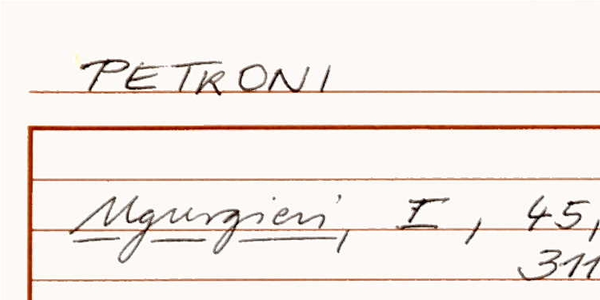 PETRONI
Ugurgieri, I, 45,
311